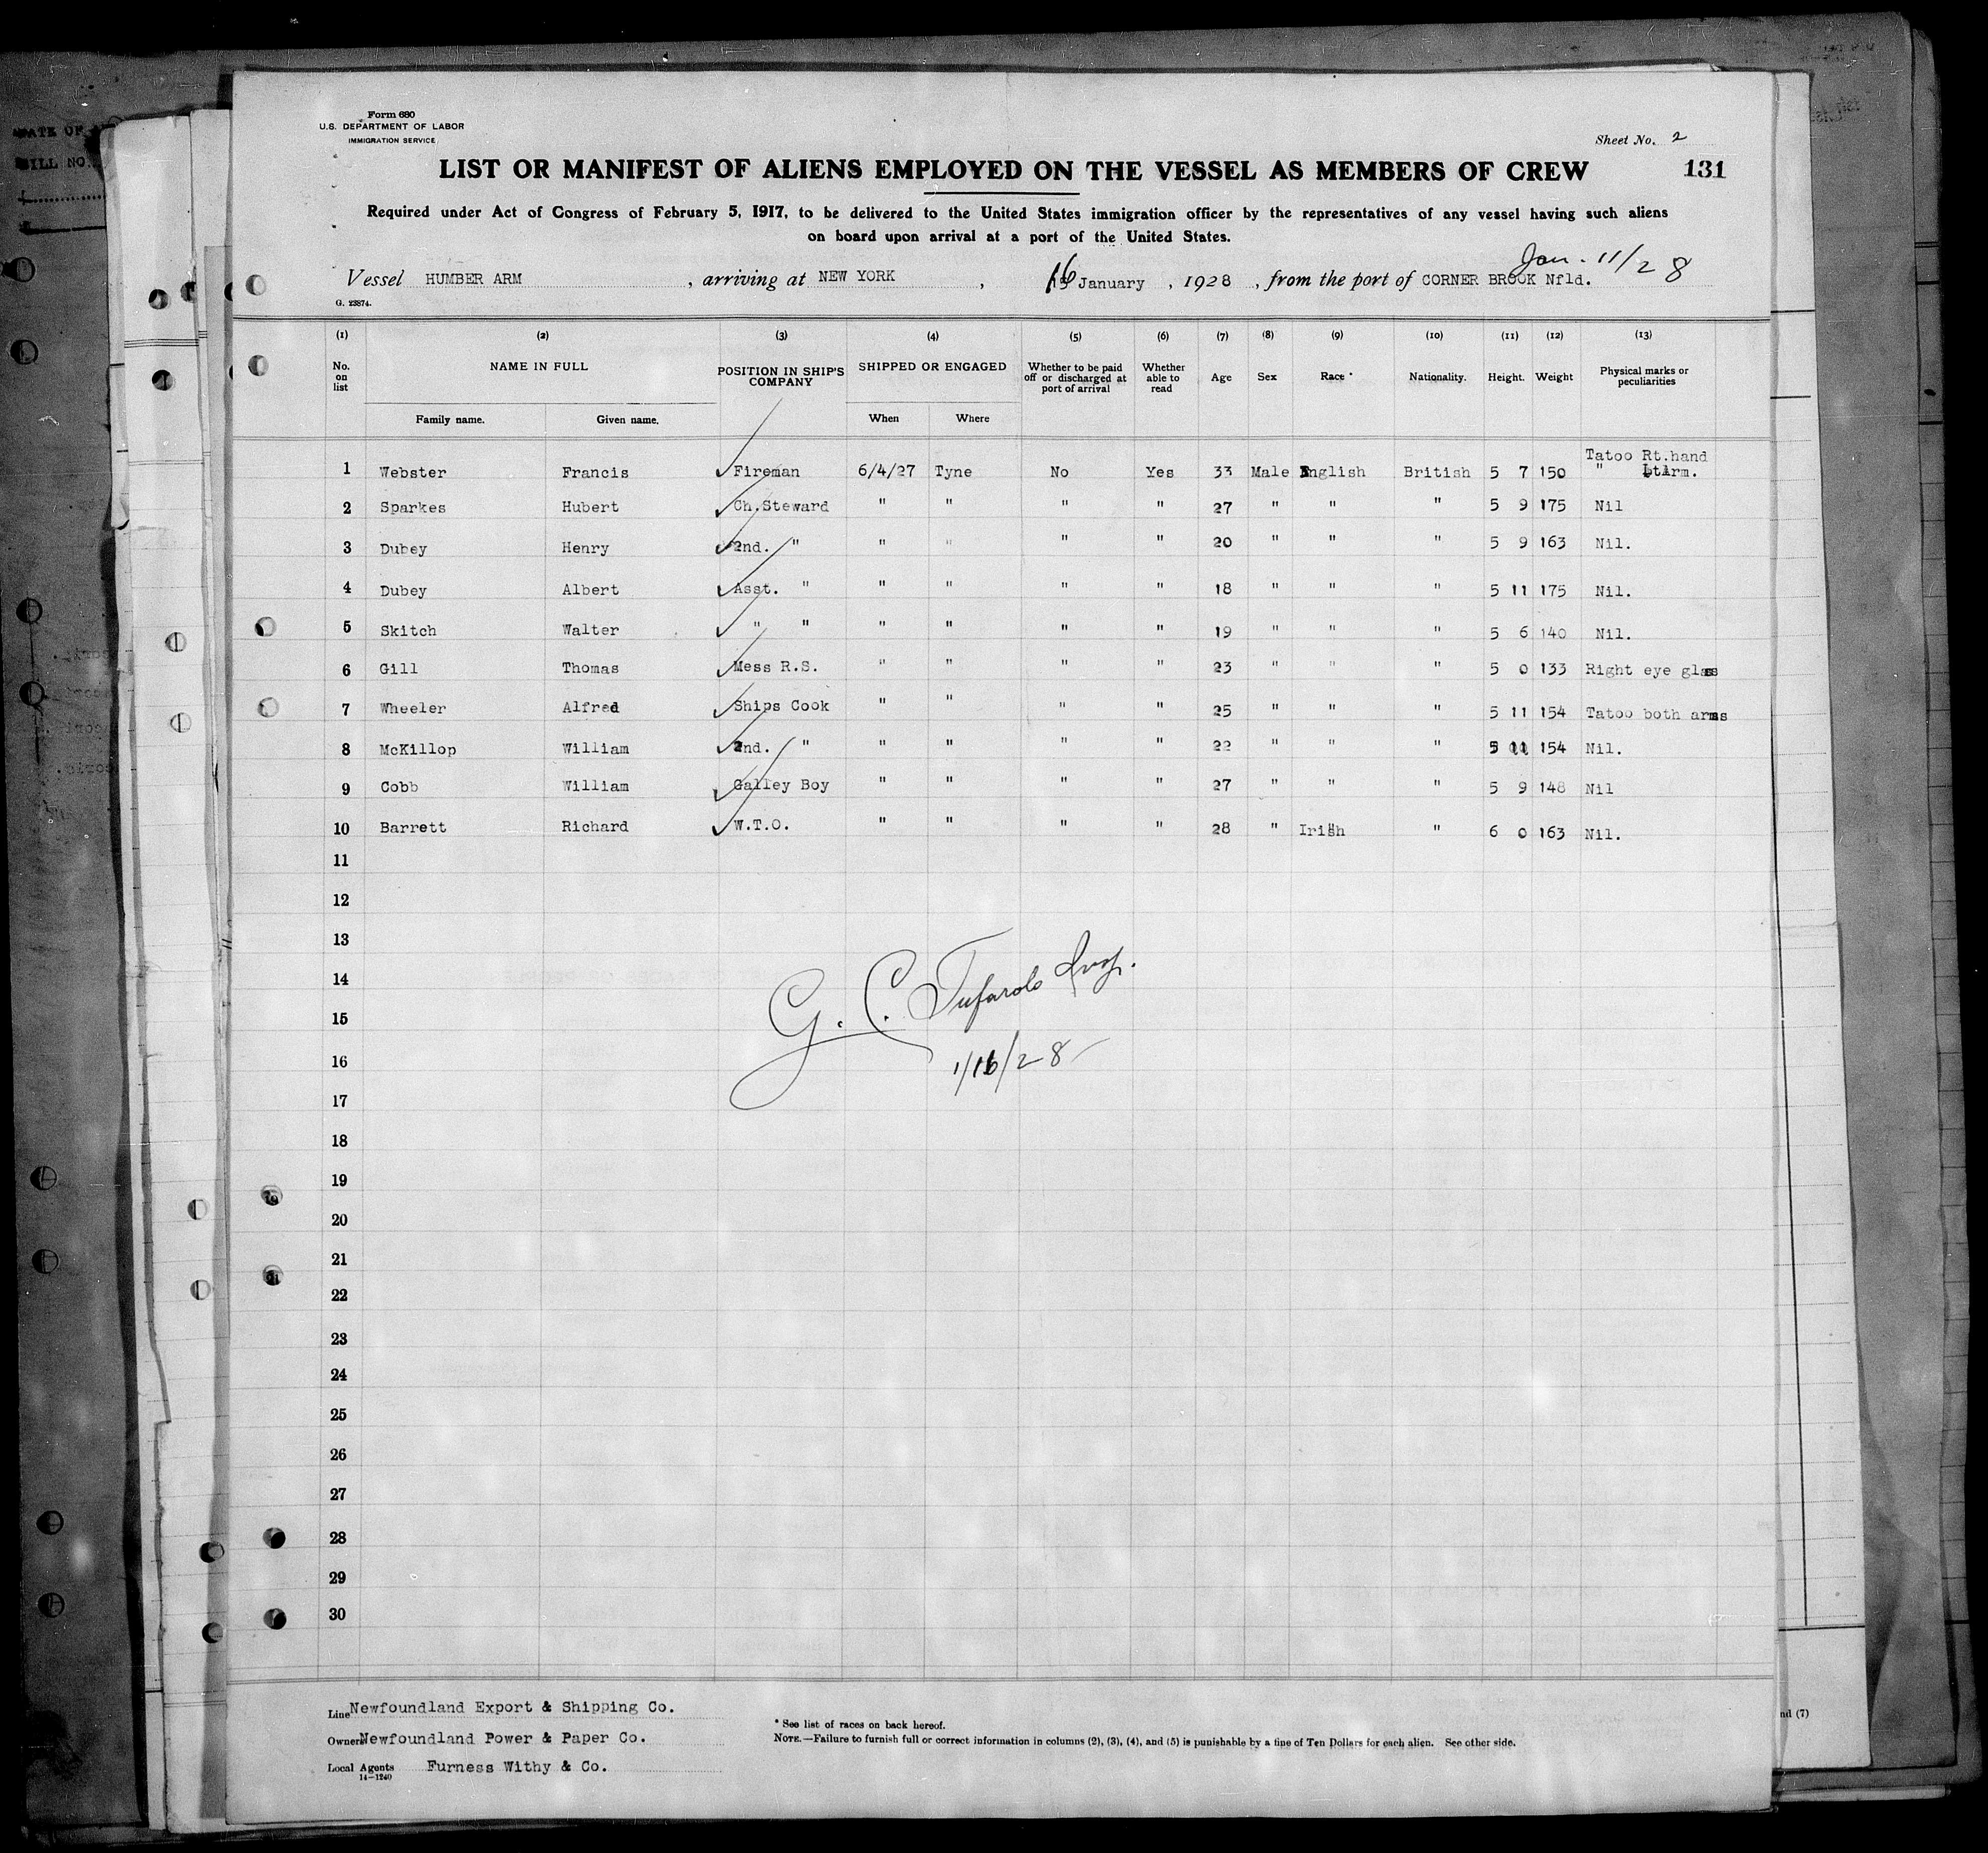 Form 680
U.S. DEPARTMENT OF LABOR
IMMIGRATION SERVICE
Sheet No. 2
LIST OR MANIFEST OF ALIENS EMPLOYED ON THE VESSEL AS MEMBERS OF CREW 131
Required under Act of Congress of February 5, 1917, to be delivered to the United States immigration officer by the representatives of any vessel having such aliens
on board upon arrival at a port of the United States.
Jan. 11/28
Vessel HUMBER ARM, arriving at NEW YORK, 16 January, 1928, from the port of CORNER BROOK Nfld.
G. 23874.
(1) (2) (3) (4) (5) (6) (7) (8) (9) (10) (11) (12) (13)
No. on list NAME IN FULL POSITION IN SHIP'S COMPANY SHIPPED OR ENGAGED Whether to be paid off or discharged at port of arrival Whether able to read Age Sex Race * Nationality. Height. Weight Physical marks or peculiarities
Family name. Given name. When Where
1 Webster Francis Fireman 6/4/27 Tyne No Yes 33 Male English British 5 7 150 Tatoo Rt.hand
" LtArm.
2 Sparkes Hubert Ch.Steward " " " " 27 " " " 5 9 175 Nil
3 Dubey Henry 2nd. " " " " " 20 " " " 5 9 163 Nil.
4 Dubey Albert Asst. " " " " " 18 " " " 5 11 175 Nil.
5 Skitch Walter " " " " " " 19 " " " 5 6 140 Nil.
6 Gill Thomas Mess R.S. " " " " 23 " " " 5 0 133 Right eye glass
7 Wheeler Alfred Ships Cook " " " " 25 " " " 5 11 154 Tatoo both arms
8 McKillop William 2nd. " " " " " 22 " " " 5 11 154 Nil.
9 Cobb William Galley Boy " " " " 27 " " " 5 9 148 Nil
10 Barrett Richard W.T.O. " " " " 28 " Irish " 6 0 163 Nil.
11
12
13
14
15
16
17
18
19
20
21
22
23
24
25
26
27
28
29
30
G. C. Tufarolo Insp.
1/16/28
Line Newfoundland Export & Shipping Co.
Owners Newfoundland Power & Paper Co.
Local Agents Furness Withy & Co.
14-1240
* See list of races on back hereof.
NOTE.—Failure to furnish full or correct information in columns (2), (3), (4), and (5) is punishable by a fine of Ten Dollars for each alien. See other side.
nd (7)